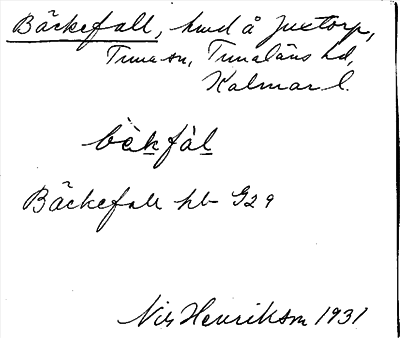 Bäckefall, hmd å Juxtorp,
Tuna sn, Tunaläns hd,
Kalmar l.
bèkfàl
Bäckefall hb G29
Nils Henrikson 1931